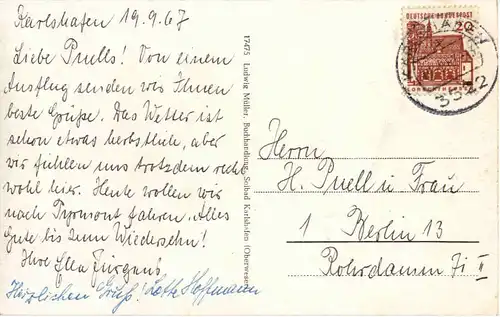 Karlshafen 19.9.67
Liebe Puells! Von einem
Ausflug senden wir Ihnen
beste Grüße. Das Wetter ist
schon etwas herbstlich, aber
wir fühlen uns trotzdem recht
wohl hier. Heute wollen wir
nach Pyrmont fahren. Alles
Gute bis zum Wiedersehn!
Ihre Ella Jürgens
Herzlichen Gruß! Lotte Hoffmann
17475 Ludwig Müller, Buchhandlung, Solbad Karlshafen (Oberweser)
DEUTSCHE BUNDESPOST
3522
Herrn
H. Puell u Frau
1 Berlin 13
Rohrdamm